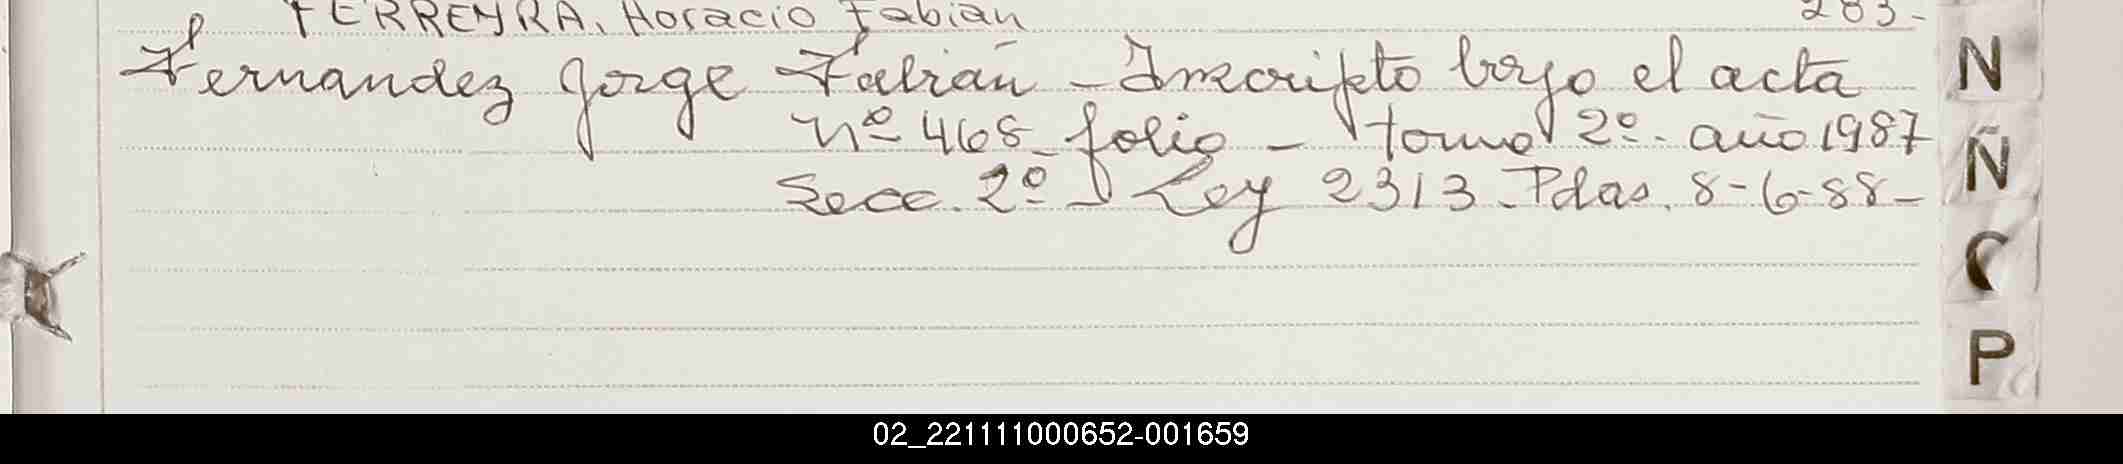 FERREYRA, Horacio Fabian 283-
Fernandez Jorge Fabián - Inscripto bajo el acta
Nº 468 - folio - tomo 2º. año 1987
Secc. 2º - Ley 2313 - Pdas. 8-6-88-
N
Ñ
P
02_221111000652-001659